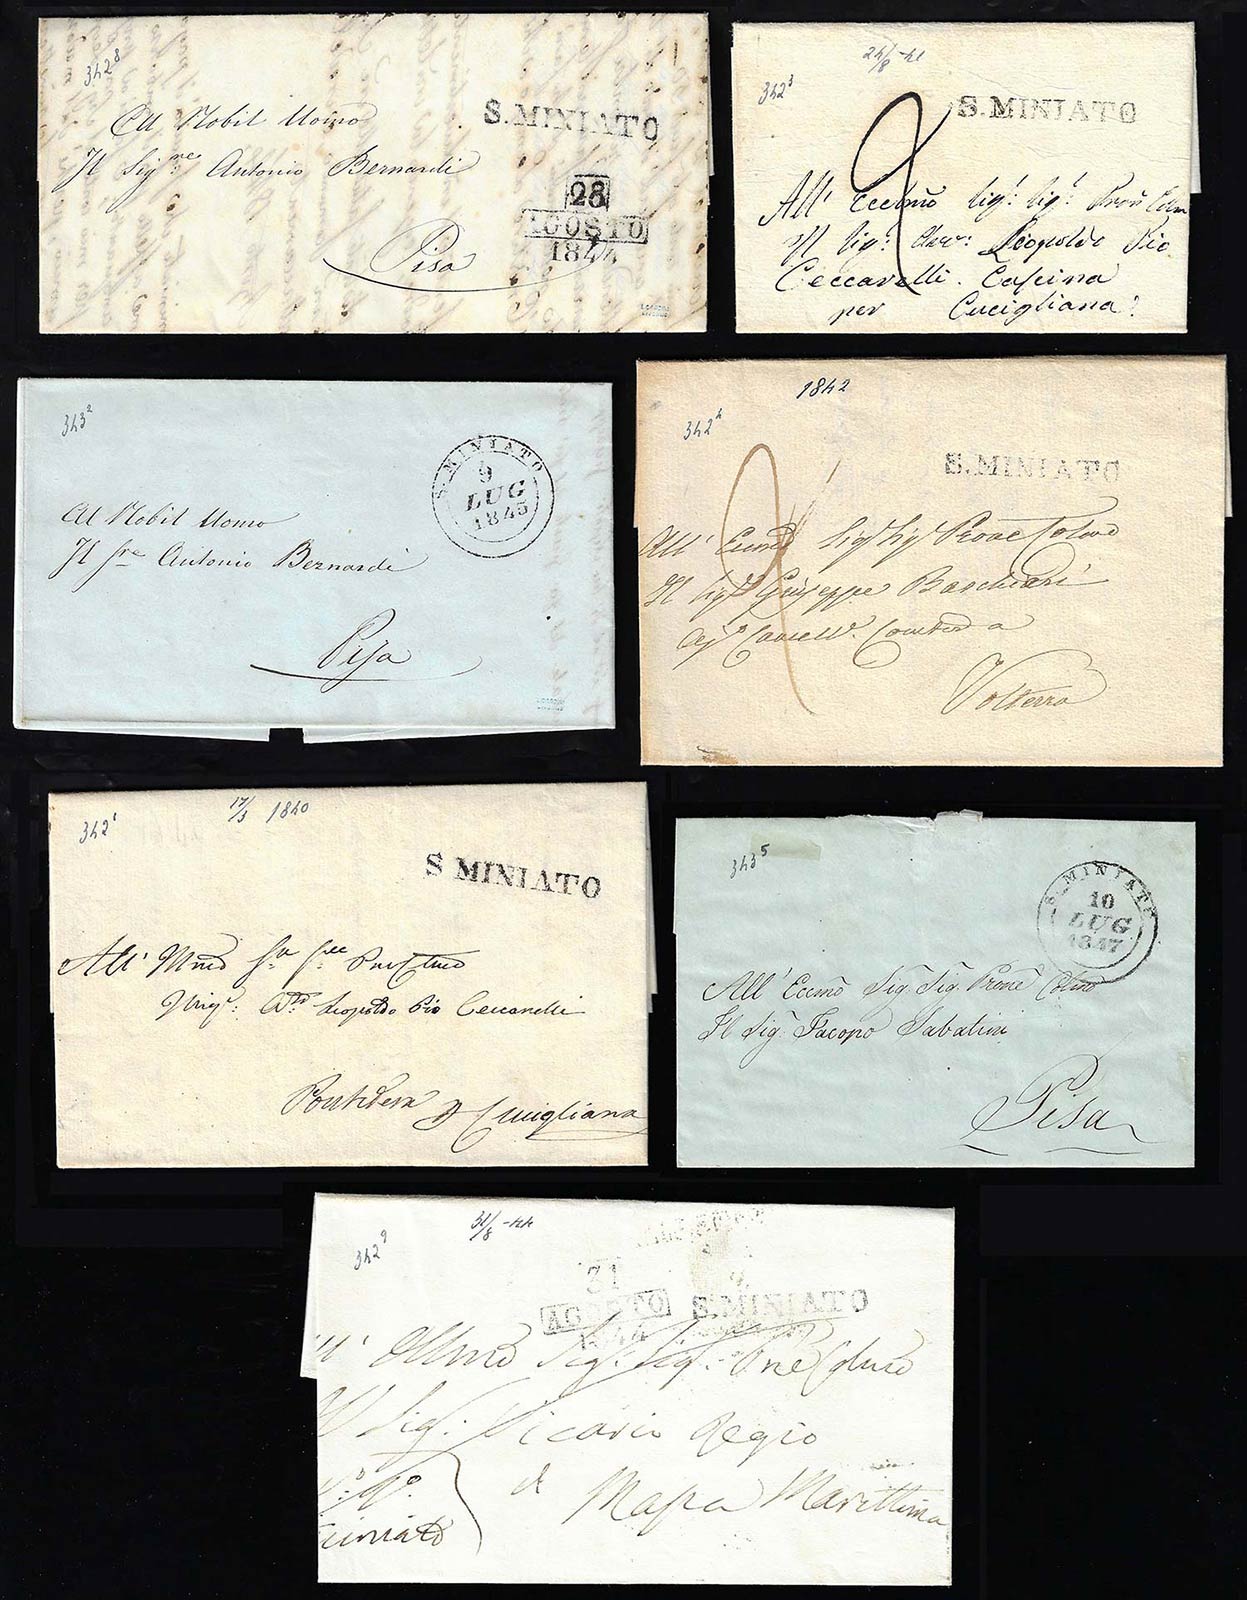 342⁸
S. MINIATO
Al Nobil Uomo
Il Sig.re Antonio Bernardi
28
AGOSTO
1844
Pisa
24/8-41
342³
S. MINIATO
2
All' Eccmo Sig.r Sig.r
Il Sig.r Cav.r Leopoldo Pio
Ceccarelli. Cascina
per Cucigliana
343²
S. MINIATO
9
LUG
1845
Al Nobil Uomo
Il Sre Antonio Bernardi
Pisa
1842
342⁴
S. MINIATO
2
All' Eccmo Sig.r Sig.r Prone Colmo
Il Sig.r Giuseppe Baschieri
a
Volterra
17/3 1840
342¹
S. MINIATO
All'
Leopoldo Pio Ceccarelli
Pontedera Cucigliana
343⁵
S. MINIATO
10
LUG
1847
All' Eccmo Sig. Sig. Prone Colmo
Il Sig. Jacopo Sabatini
Pisa
31/8-44
342⁹
31
AGOSTO
1844
S. MINIATO
Sig.r Sig.r Prne Colmo
Il Sig.r Vicario Regio
di Massa Marittima